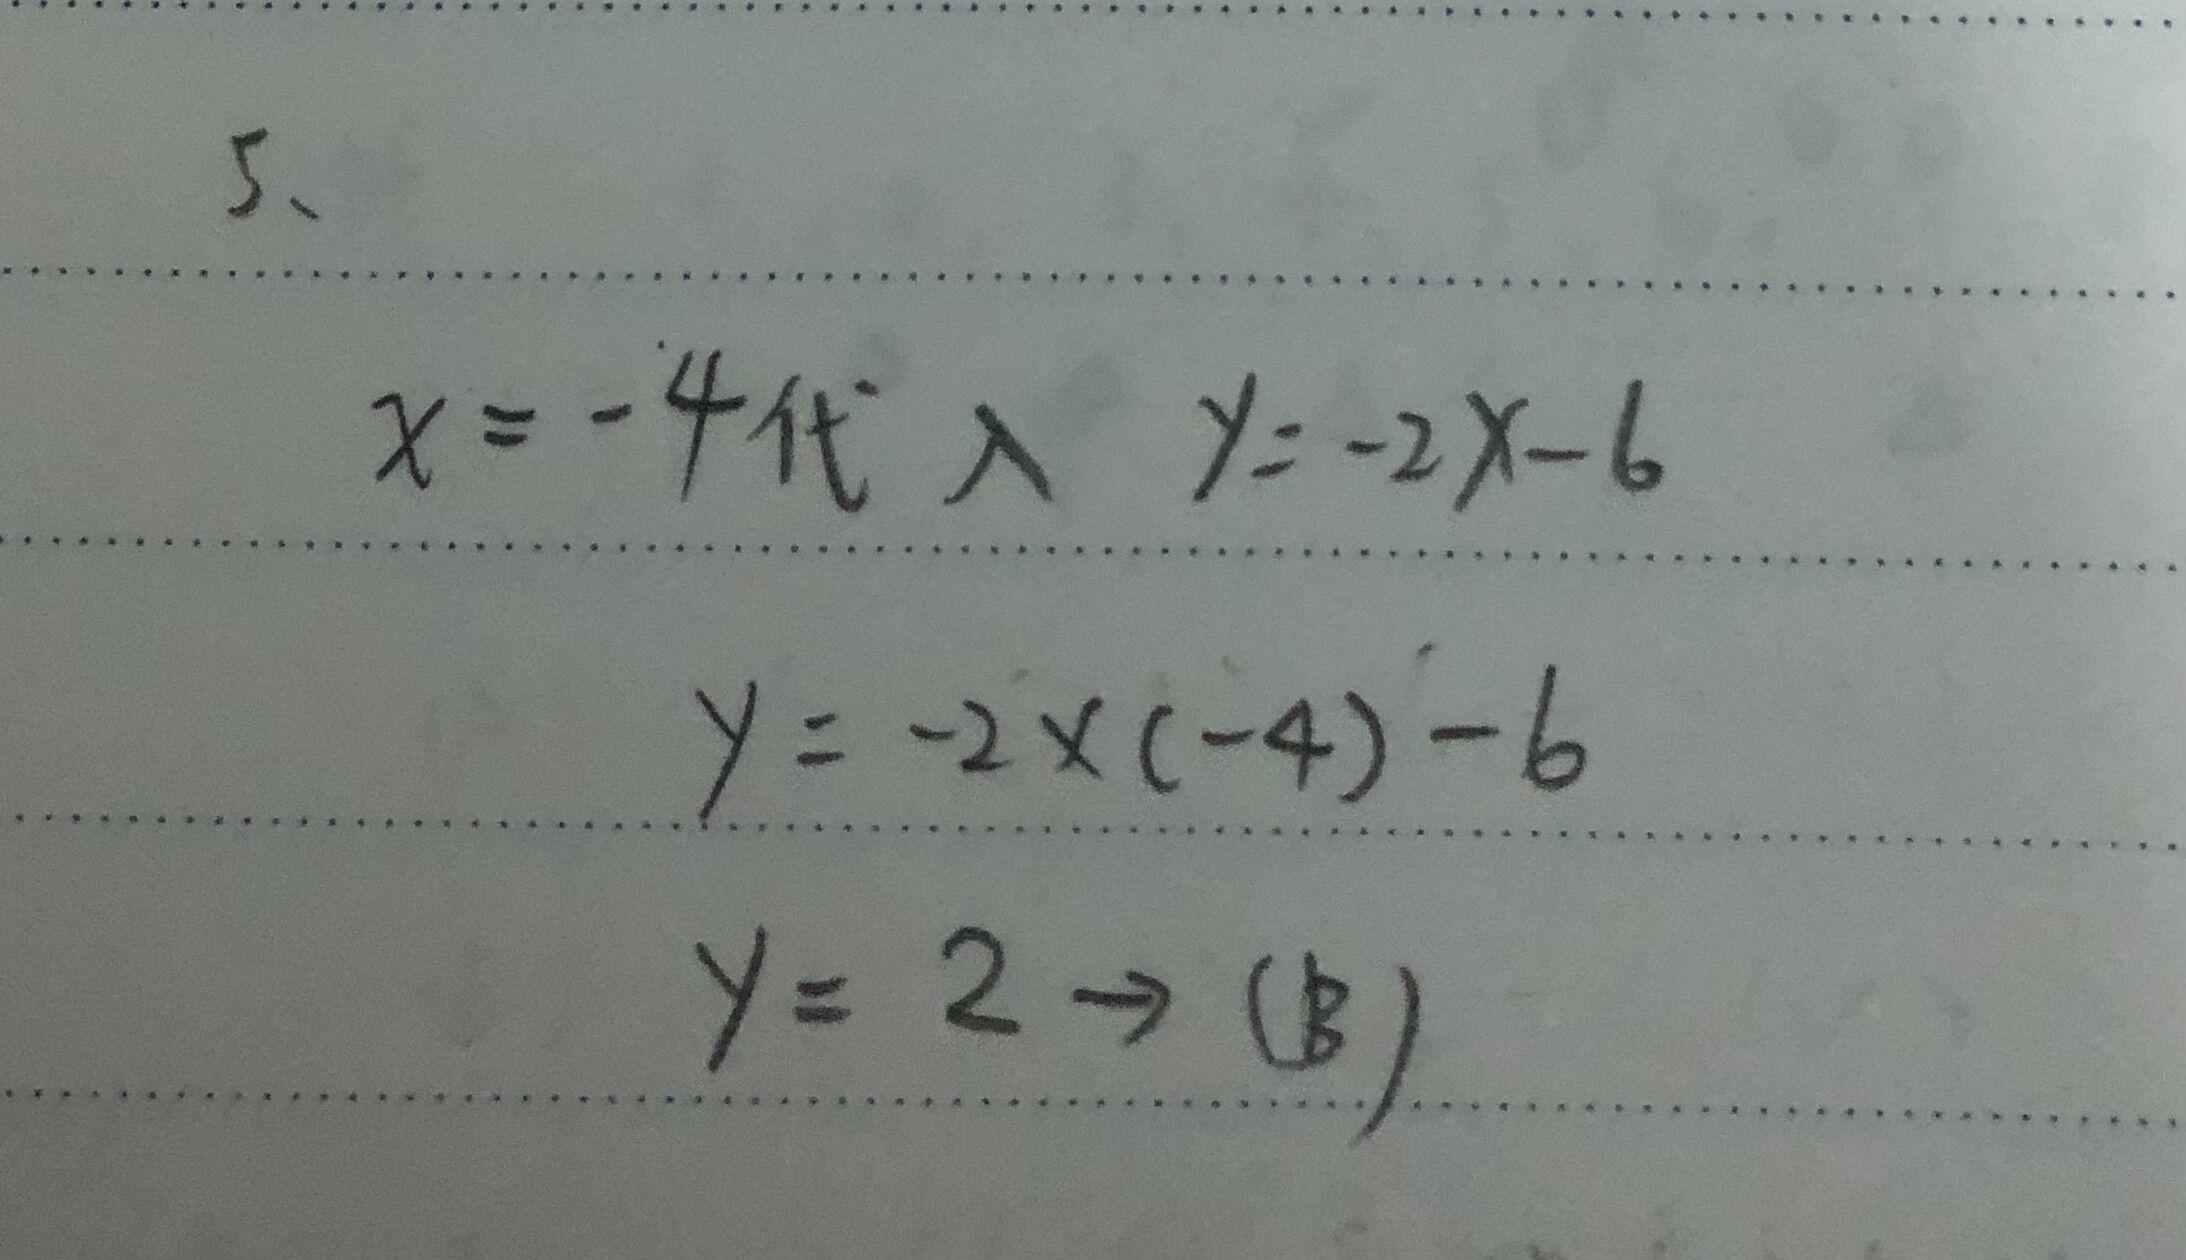 5、
x = -4代入 y = -2x-6
y = -2×(-4)-6
y = 2 → (B)